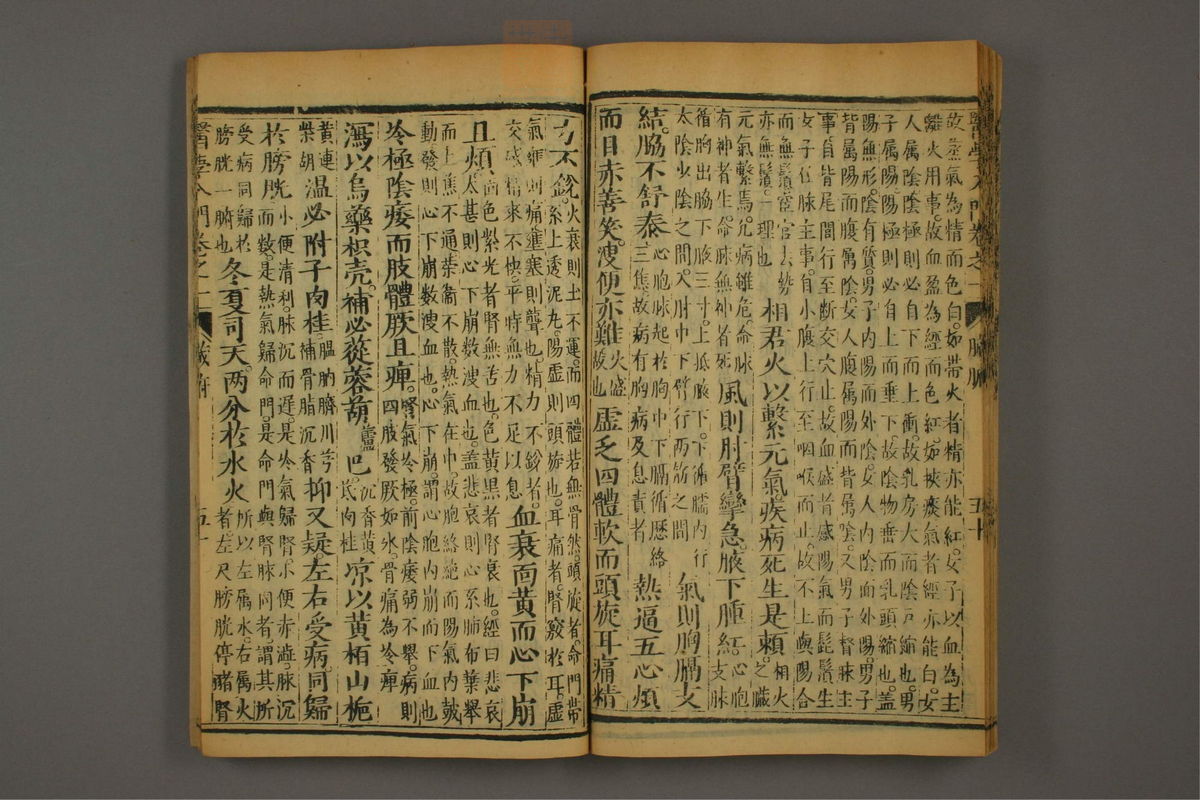 故蒸氣為精而色白。如帶火者精亦能紅。女子以血為主
雖火用事。故血盈為經而色紅。如被痰氣者經亦能白。女
人屬陰。陰極則必自下而上衝。故乳房大而陰戶縮也。男
子屬陽。陽極則必自上而垂下。故陰物垂而乳頭縮也。蓋
陽無形。陰有質。男子內陽而外陰。女人內陰而外陽。男子
背屬陽而腹屬陰。女人腹屬陽而背屬陰。又男子督脉主
事。自背尾閭行至斷交穴止。故血盛者感陽氣而髭鬚生
女子任脉主事。自小腹上行至咽喉而止。故不上與陽合
而無鬚。宦官去勢
亦無鬚。一理也
相君火以繫元氣。疾病死生是賴。
相火
之臟
元氣繫焉。凡病雖危。命脉
有神者生。命脉無神者死
風則肘臂攣急。腋下腫紅。
心胞
支脉
循胸出脇下腋三寸。上抵腋下。下循臑內行
太陰少陰之間。入肘中下臂。行兩筋之間
氣則胸膈支
結。脇不舒泰
心胞脉起於胸中。下膈循歷絡
三焦。故病有胸病及息賁者
熱逼五心煩
而目赤善笑。溲便亦難
火盛
故也
虛乏四體軟而頭旋耳痛。精
力不餘。
火衰則土不運。而四體若無骨然。頭旋者。命門帶
系上透泥丸。陽虛則頭旋也。耳痛者。腎竅於耳。虛
氣壅則痛。壅塞則聾也。精力不餘者。
交感精來不快。平時無力不足以息
血衰面黃而心下崩
且煩。
面色紫光者腎無苦也。色黃黑者腎衰也。經曰悲哀
太甚則心下崩。數溲血也。蓋悲哀則心系肺布葉舉
而上焦不通。榮衛不散。熱氣在中。故胞絡絕而陽氣內皷
動。發則心下崩數溲血也。心下崩。謂心胞內崩而下血也
冷極陰痿而肢體厥且痺。
腎氣冷極。前陰痿弱不舉。病則
四肢發厥如冰。骨痛為冷痺
瀉以烏藥枳壳。補必蓯蓉葫蘆巴。
沉香黃
芪肉桂
涼以黃栢山梔
黃連
柴胡
溫必附子肉桂。
膃肭臍川芎
補骨脂沉香
抑又疑左右受病。同歸
於膀胱
小便清利。脉沉而遲。是冷氣歸腎。小便赤澁。脉沉
而數。是熱氣歸命門。是命門與腎脉同者。謂其所
受病同歸於
膀胱一腑也
冬夏司天。兩分於水火
所以左屬水。右屬火
者。左尺膀胱停瀦腎
醫學入門卷之一
臟腑
五十
醫學入門卷之一
臟腑
五十一